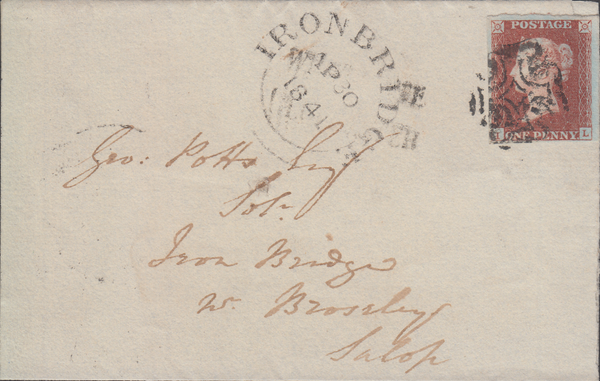 IRONBRIDGE
AP 30
1841
POSTAGE
ONE PENNY
L
Geo: Potts Esqr
Solr
Iron Bridge
nr. Broseley
Salop